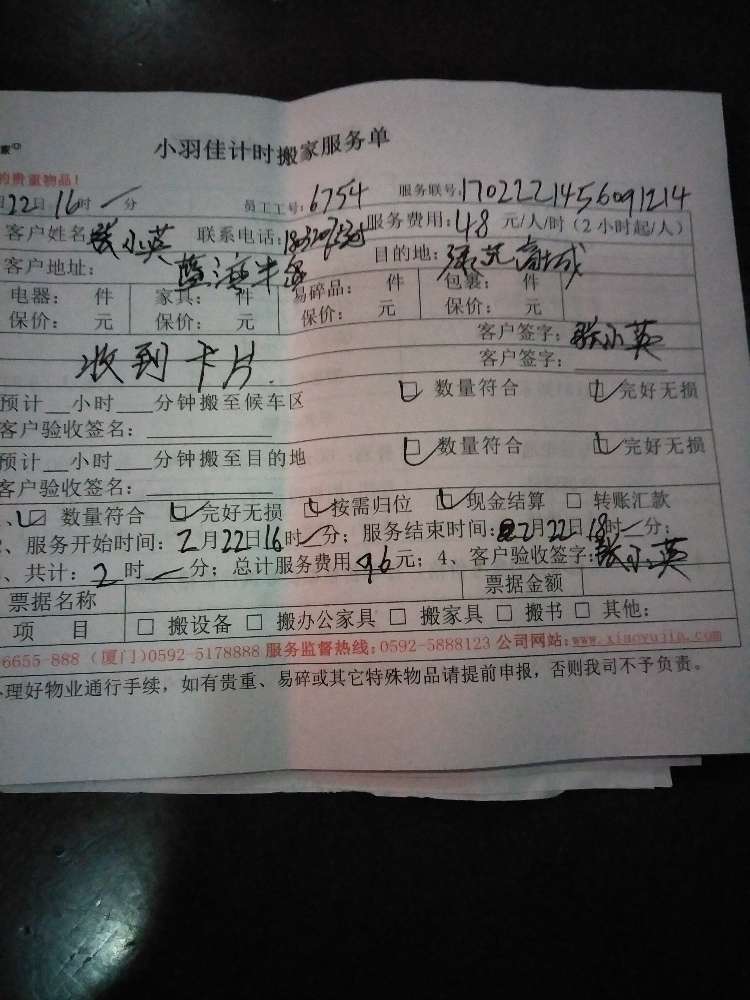 小羽佳计时搬家服务单
的贵重物品!
22日16时一分 员工工号:6754 服务联号:1702221456091214
客户姓名 小英 联系电话: 服务费用:48元/人/时(2小时起/人)
客户地址: 目的地:
电器: 件 家具: 件 易碎品: 件 包裹: 件
保价: 元 保价: 元 保价: 元 保价: 元
客户签字:张小英
收到卡片. 客户签字:
预计__小时___分钟搬至候车区 数量符合 完好无损
客户验收签名:
预计__小时___分钟搬至目的地 数量符合 完好无损
客户验收签名:
、☑数量符合 ☑完好无损 ☑按需归位 ☑现金结算 □ 转账汇款
、服务开始时间:2月22日16时一分; 服务结束时间:2月22日18时一分;
、共计:2时一分; 总计服务费用96元; 4、客户验收签字:张小英
票据名称 票据金额
项 目 □ 搬设备 □ 搬办公家具 □ 搬家具 □ 搬书 □ 其他:
6655-888 (厦门)0592-5178888 服务监督热线:0592-5888123 公司网站:www.xiaoyujia.com
理好物业通行手续,如有贵重、易碎或其它特殊物品请提前申报,否则我司不予负责。